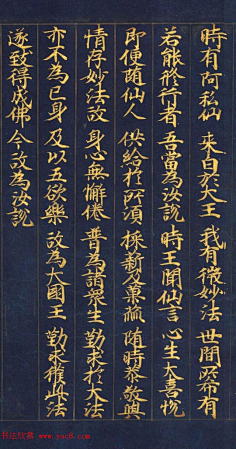 時有阿私仙 來白於大王 我有微妙法 世間所希有
若能修行者 吾當為汝說 時王聞仙言 心生大喜悅
即便隨仙人 供給於所須 採薪及菓蓏 隨時恭敬與
情存妙法故 身心無懈惓 普為諸眾生 勤求於大法
亦不為己身 及以五欲樂 故為大國王 勤求獲此法
遂致得成佛 今故為汝說
书法欣赏 www.yac8.com